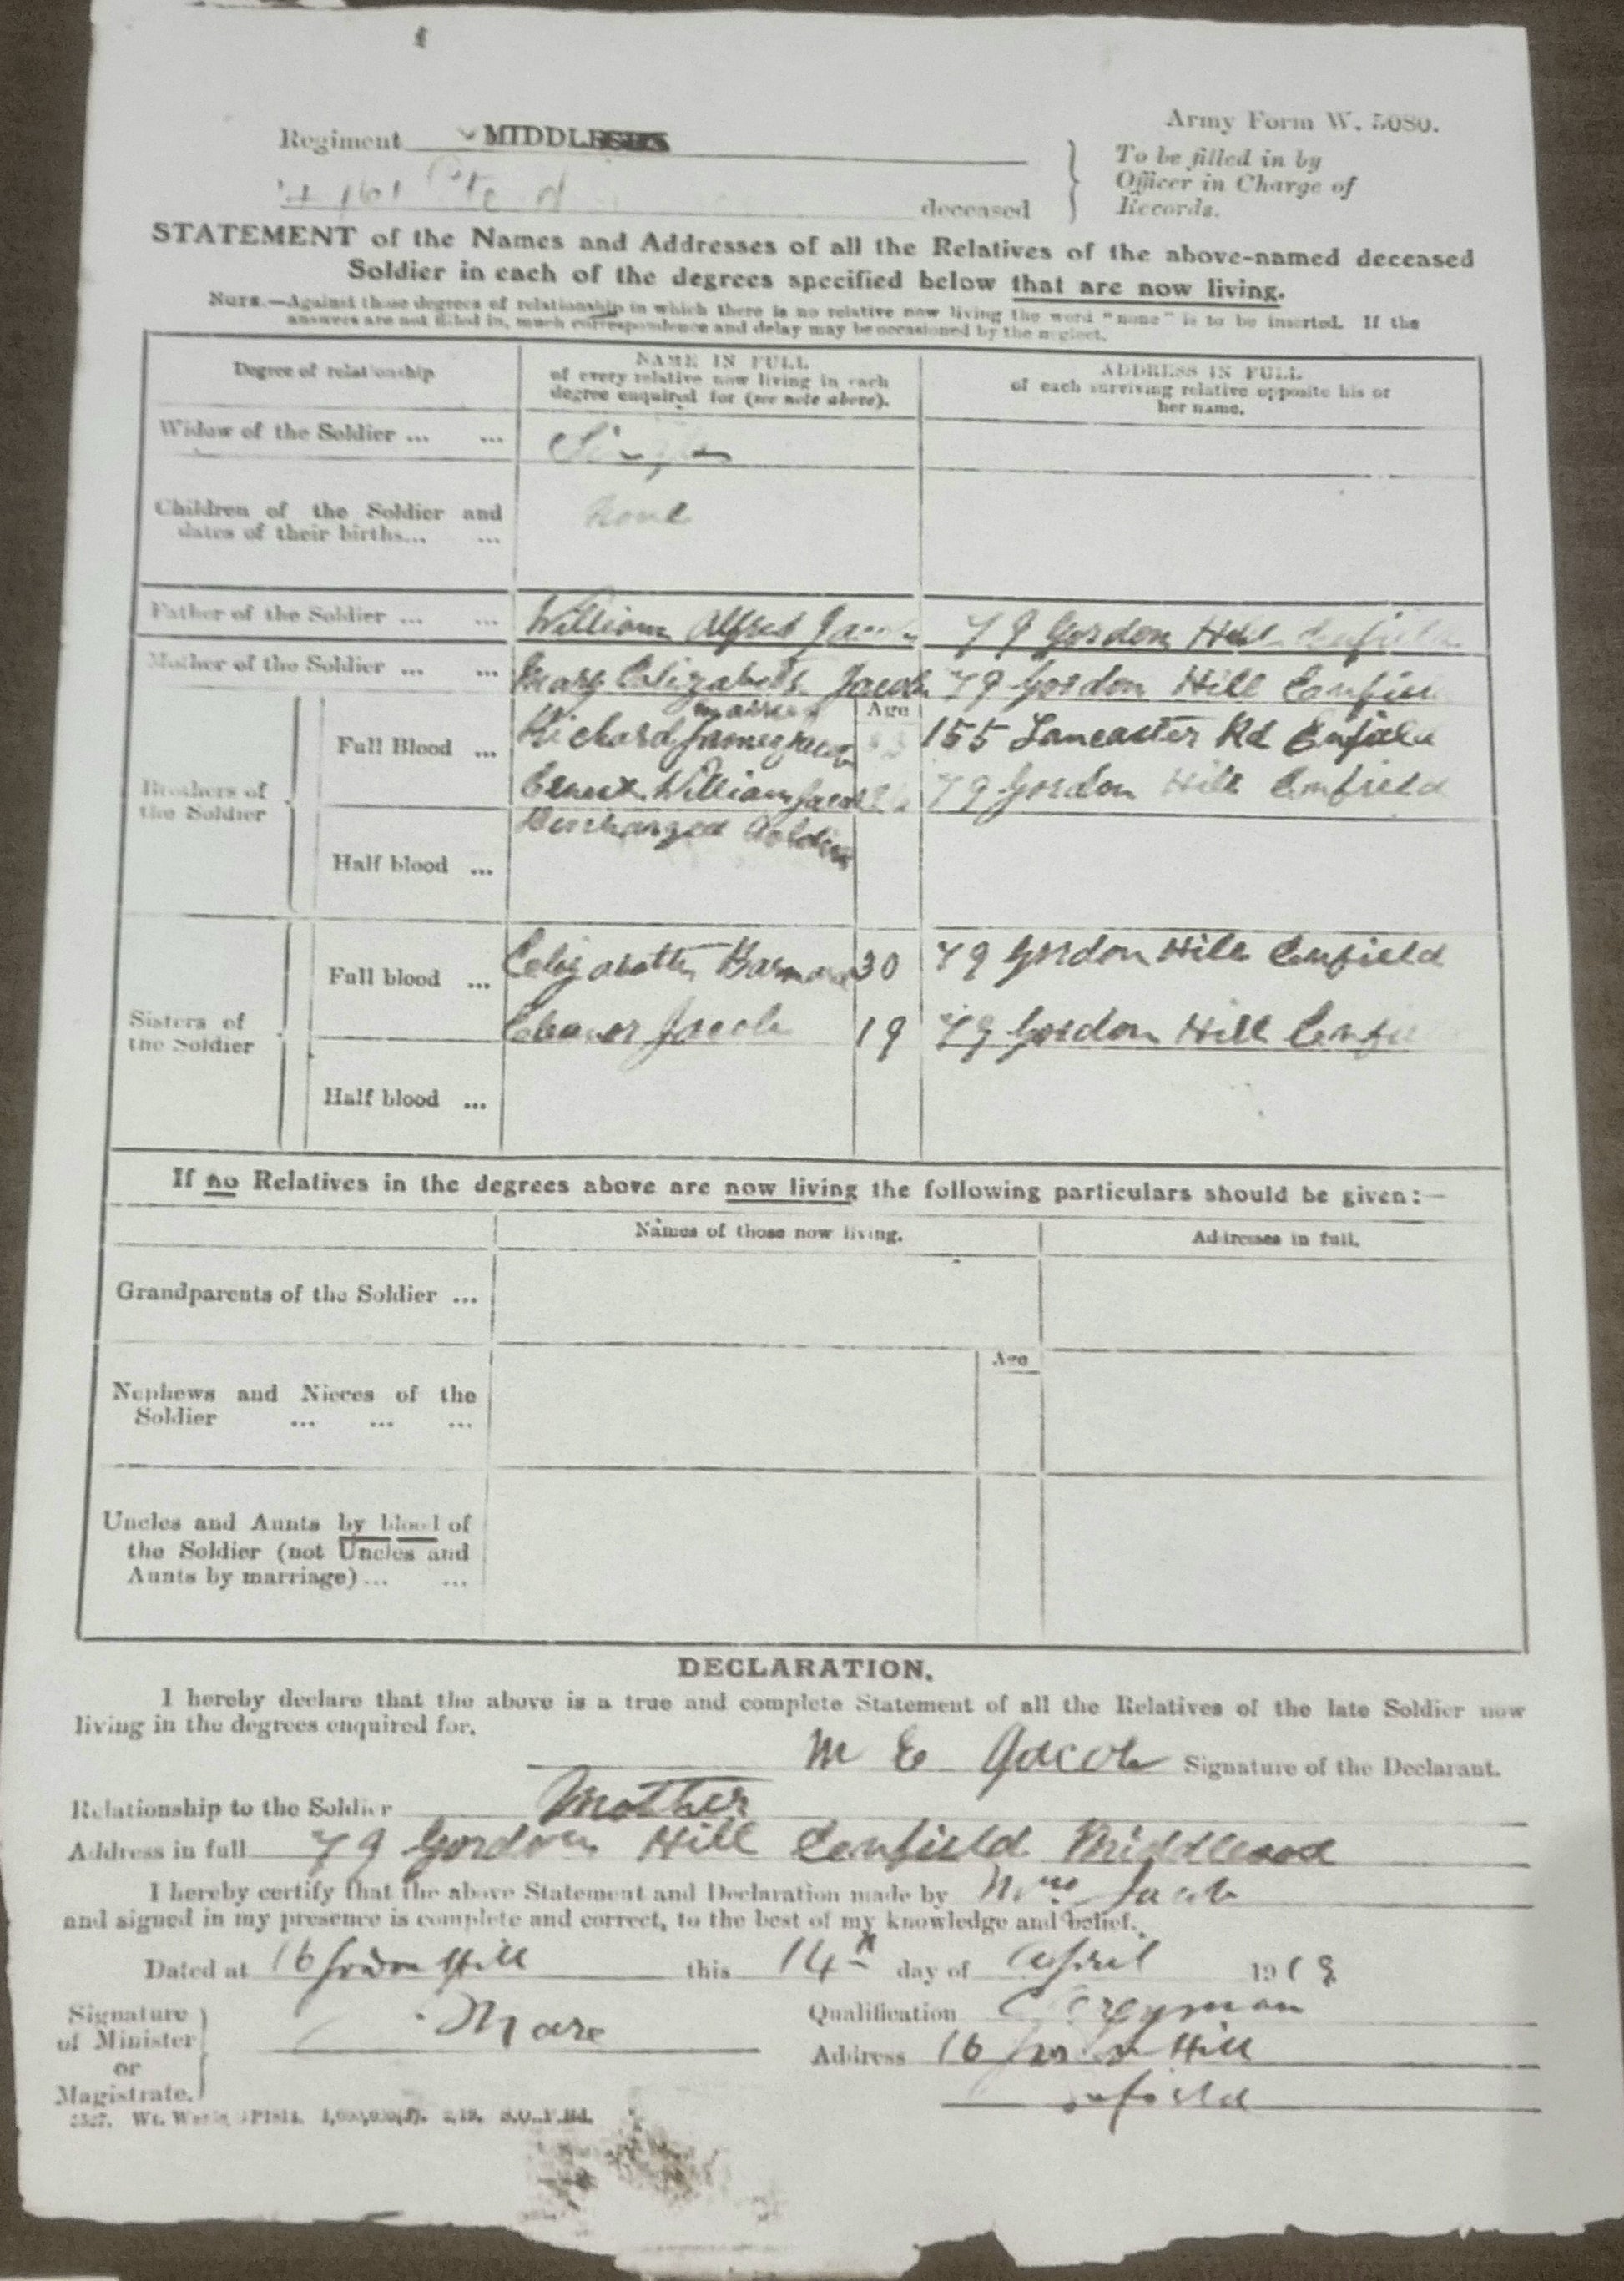 Army Form W. 5080.
Regiment MIDDLESEX
To be filled in by
Officer in Charge of
Records.
Pte
deceased
STATEMENT of the Names and Addresses of all the Relatives of the above-named deceased
Soldier in each of the degrees specified below that are now living.
NOTE.—Against those degrees of relationship in which there is no relative now living the word "none" is to be inserted. If the
answers are not filled in, much correspondence and delay may be occasioned by the neglect.
Degree of relationship
NAME IN FULL
of every relative now living in each
degree enquired for (see note above).
ADDRESS IN FULL
of each surviving relative opposite his or
her name.
Widow of the Soldier ... ...
Single
Children of the Soldier and
dates of their births... ...
None
Father of the Soldier ... ... William Alfred Jacob 79 Gordon Hill Enfield
Mother of the Soldier ... ... Mary Elizabeth Jacob 79 Gordon Hill Enfield
married
Age
Brothers of
the Soldier
Full Blood ... Richard James Jacob 155 Lancaster Rd Enfield
Ernest William Jacob 79 Gordon Hill Enfield
Discharged Soldier
Half blood ...
Sisters of
the Soldier
Full blood ... Elizabeth 30 79 Gordon Hill Enfield
Eleanor Jacob 19 79 Gordon Hill Enfield
Half blood ...
If no Relatives in the degrees above are now living the following particulars should be given:—
Names of those now living.
Addresses in full.
Grandparents of the Soldier ...
Age
Nephews and Nieces of the
Soldier ... ... ...
Uncles and Aunts by blood of
the Soldier (not Uncles and
Aunts by marriage)... ...
DECLARATION.
I hereby declare that the above is a true and complete Statement of all the Relatives of the late Soldier now
living in the degrees enquired for.
M E Jacob Signature of the Declarant.
Relationship to the Soldier Mother
Address in full 79 Gordon Hill Enfield Middlesex
I hereby certify that the above Statement and Declaration made by Mrs Jacob
and signed in my presence is complete and correct, to the best of my knowledge and belief.
Dated at 16 Gordon Hill this 14th day of April 1919
Signature
of Minister
or
Magistrate.
Qualification Clergyman
Address 16 Gordon Hill
Enfield